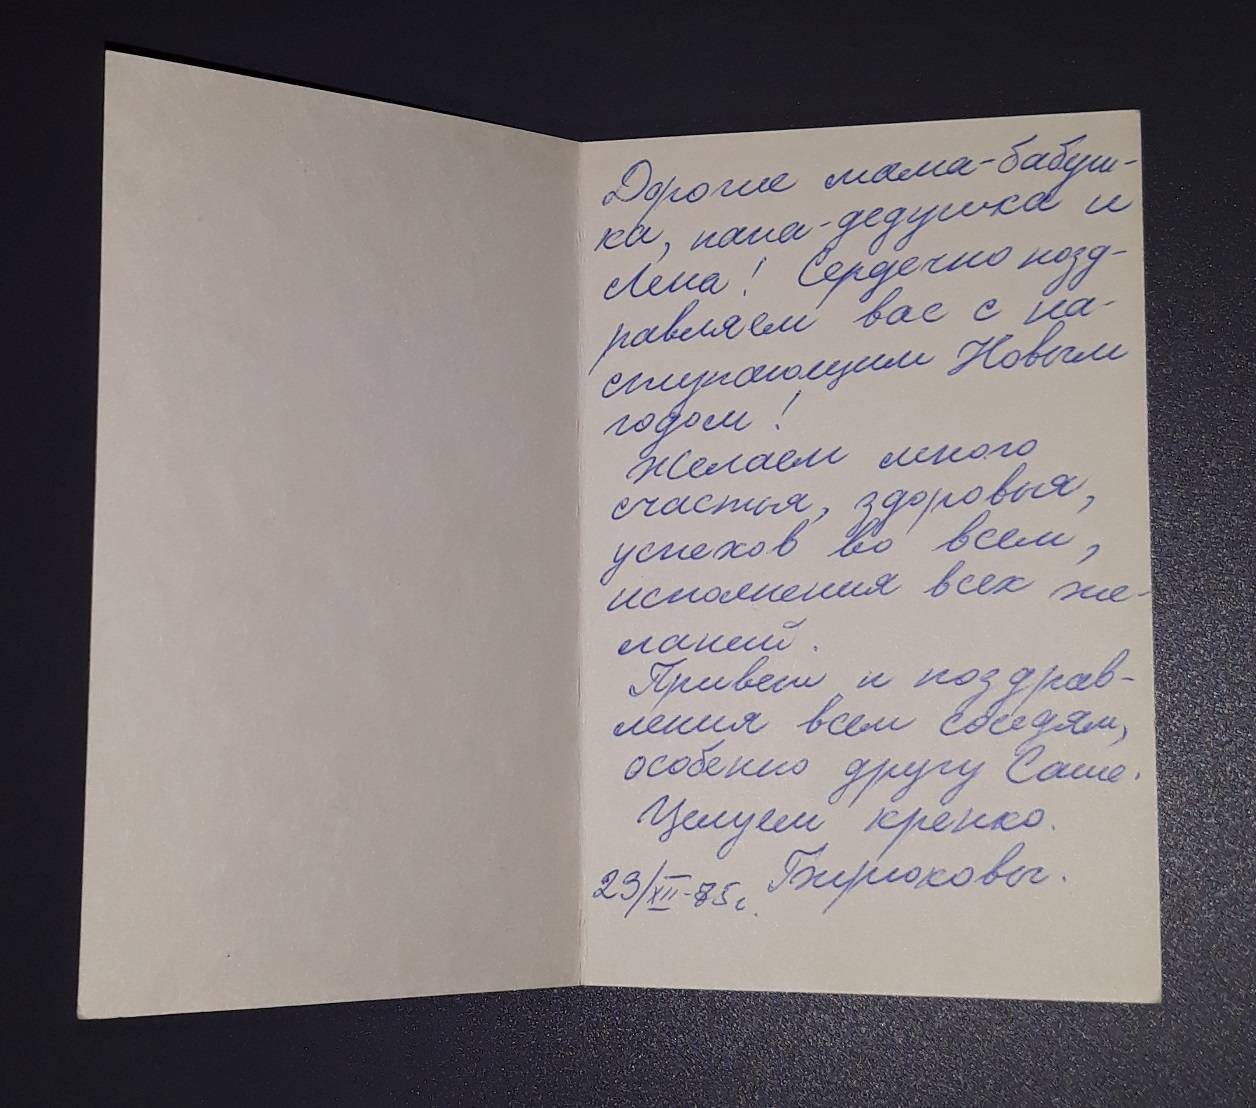 Дорогие мама-бабуш-
ка, папа-дедушка и
Лена! Сердечно позд-
равляем вас с на-
ступающим Новым
годом!
Желаем много
счастья, здоровья,
успехов во всем,
исполнения всех же-
ланий.
Привет и поздрав-
ления всем соседям,
особенно другу Саше.
Целуем крепко.
Бирюковы.
23/XII-85г.